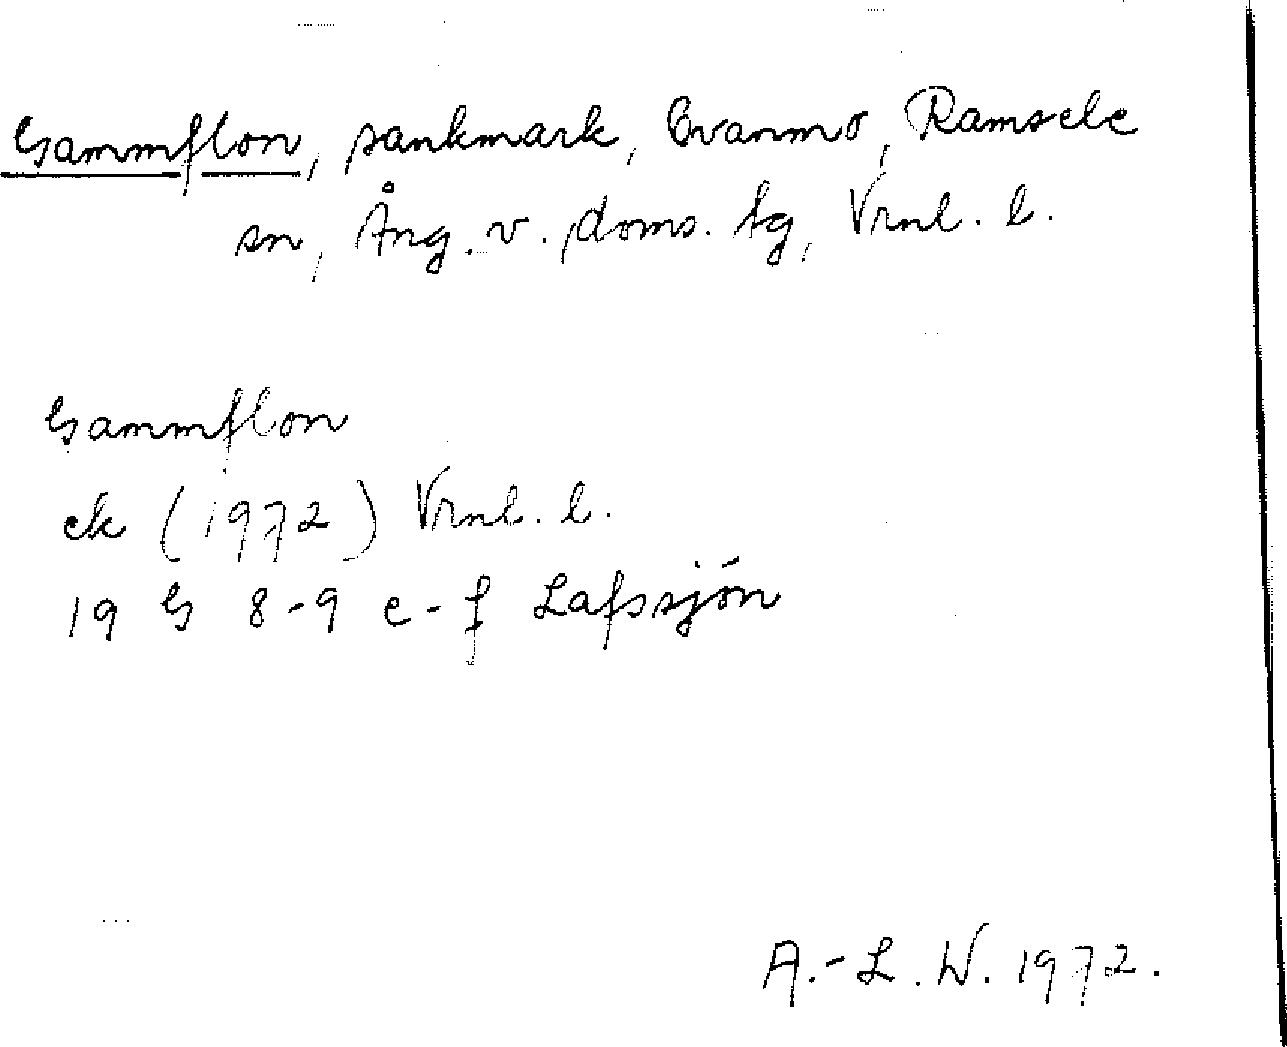 Gammflon, sankmark, Ovanmo, Ramsele
sn, Ång. v. doms. tg, Vrnl. l.
Gammflon
ek (1972) Vrnl. l.
19 G 8-9 e-f Lafssjön
A.-L. W. 1972.